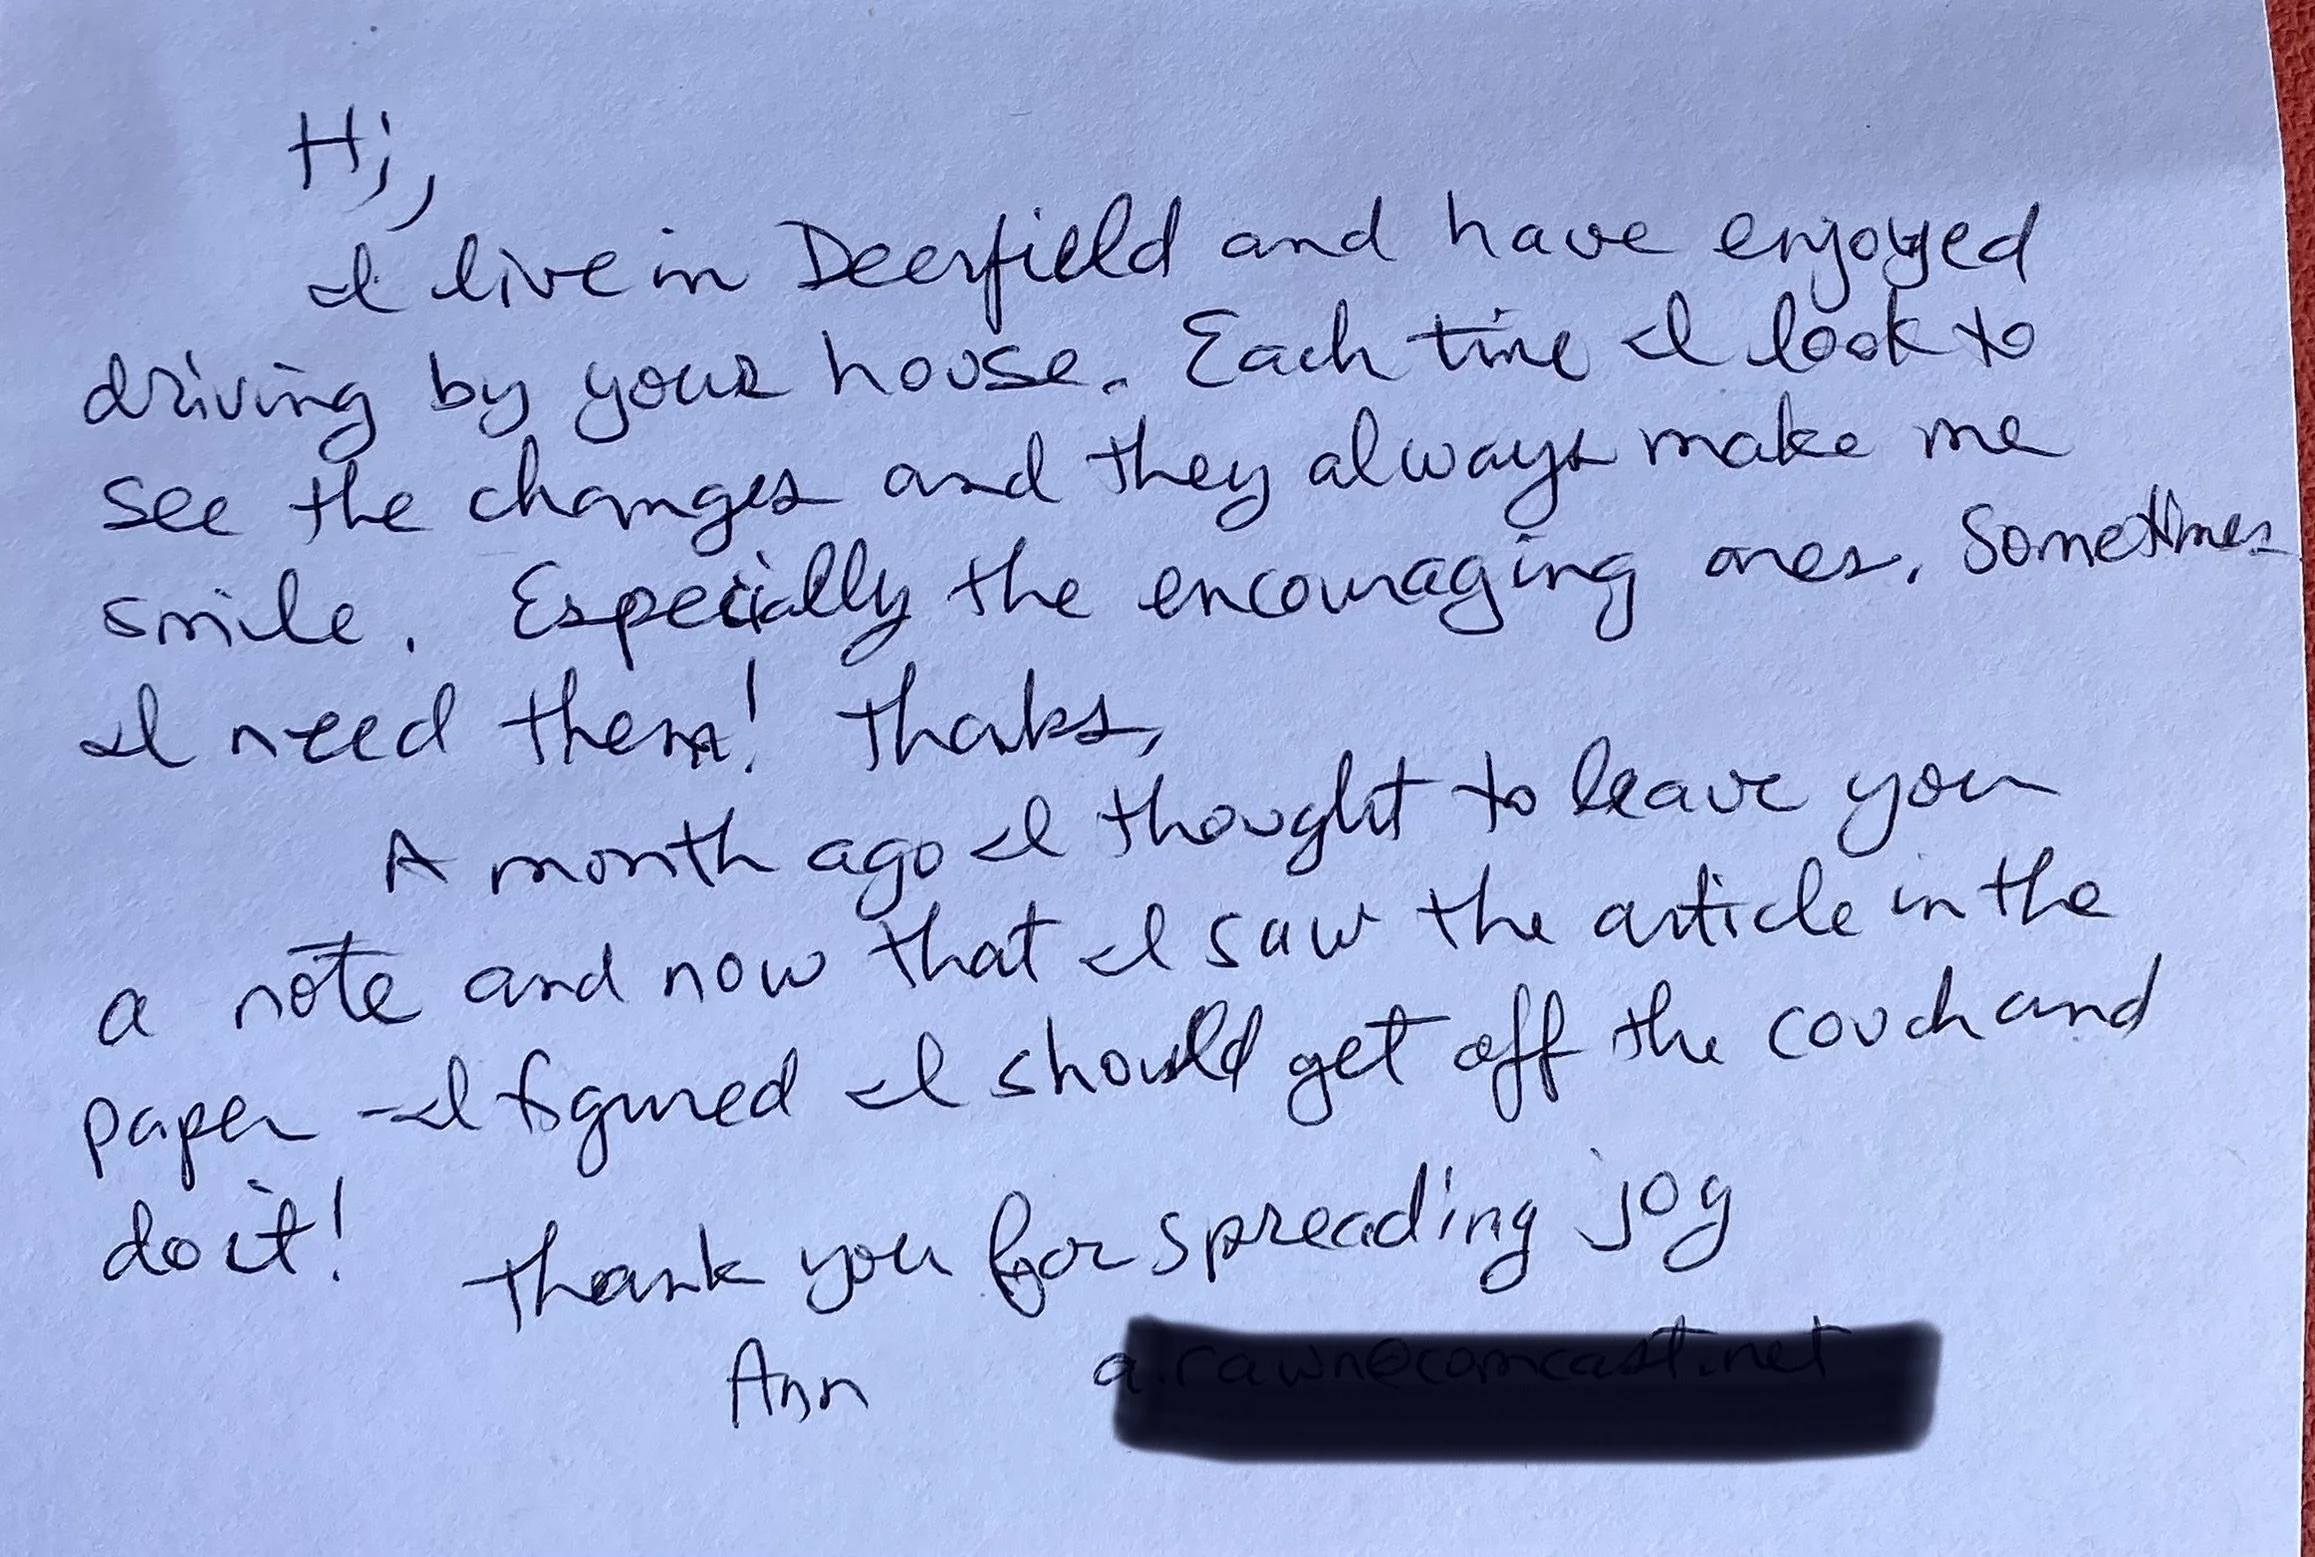 Hi,
I live in Deerfield and have enjoyed
driving by your house. Each time I look to
see the changes and they always make me
smile. Especially the encouraging ones. Sometimes
I need them! Thaks,
A month ago I thought to leave you
a note and now that I saw the article in the
paper - I figured I should get off the couch and
do it!
Thank you for spreading joy
Ann